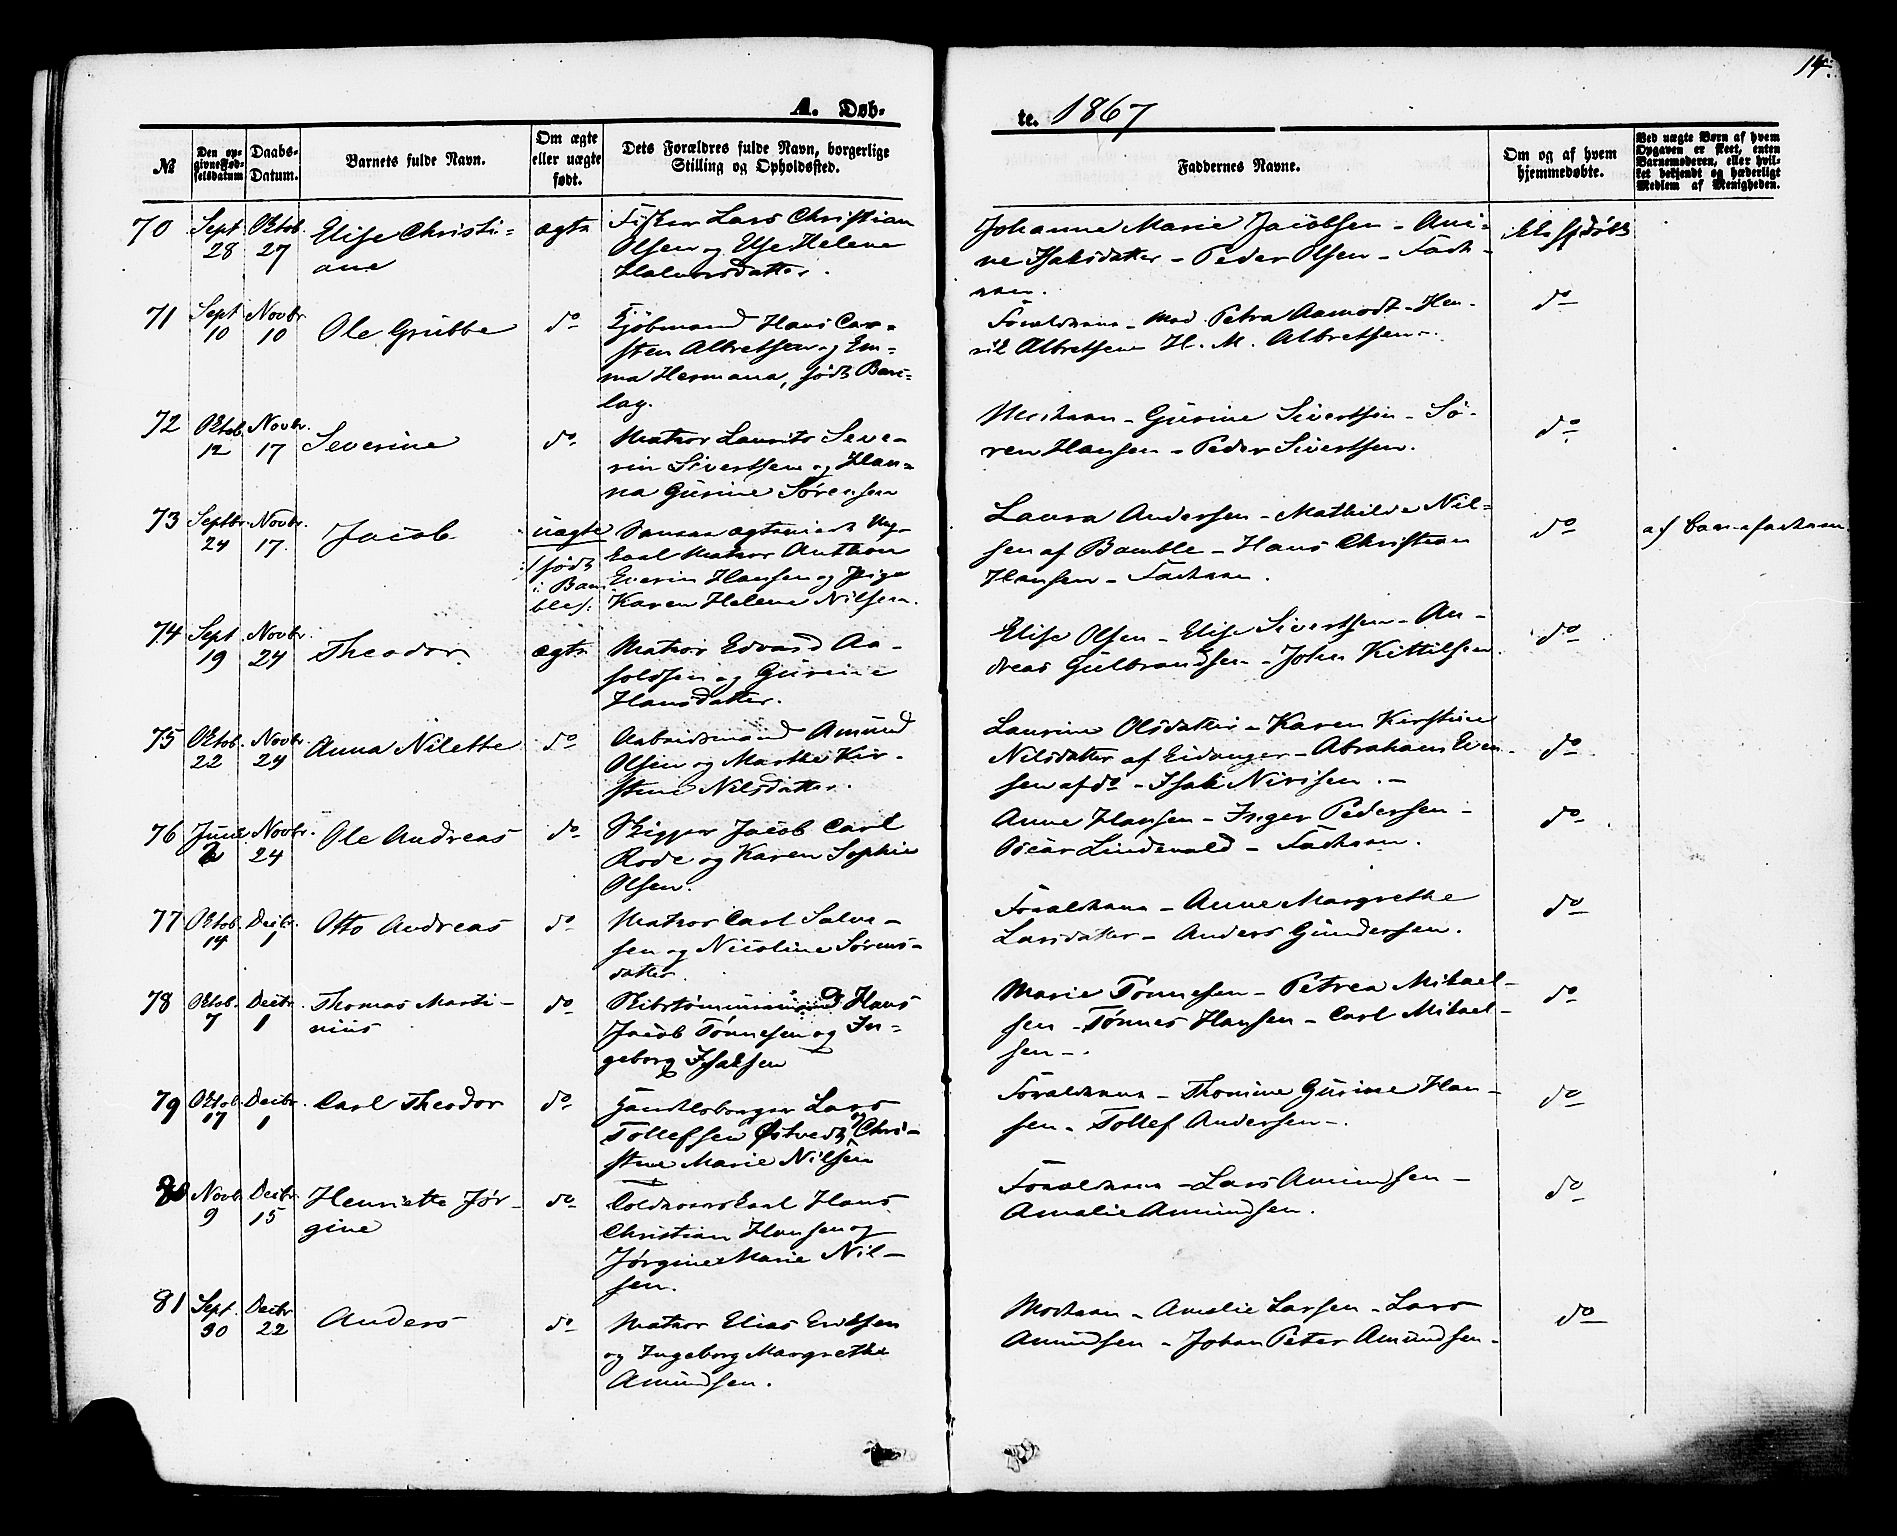 14.
A. Døb-
te. 1867
№
Den op-
givne Fød-
selsdatum
Daabs-
Datum.
Barnets fulde Navn.
Om ægte
eller uægte
født.
Dets Forældres fulde Navn, borgerlige
Stilling og Opholdssted.
Faddernes Navne.
Om og af hvem
hjemmedøbte.
Ved uægte Børn af hvem
Opgaven er skeet, enten
Barnemoderen, eller hvil-
ket bekjendt og hæderligt
Medlem af Menigheden.
70 Sept. 28 Oktob. 27 Elise Christi-
ane
ægte
Fisker Lars Christian
Olsen og Else Helene
Halvorsdatter.
Johanne Marie Jacobsen - Ani-
ne Isaksdatter - Peder Olsen - Fade-
ren.
71 Sept 10 Novbr. 10 Ole Grubbe do
Kjøbmand Hans Car-
sten Albretsen og Em-
ma Hermana, født Bar-
lag.
Forældrene - Mad. Petra Aamodt - Hen-
rik Albretsen H. M. Albretsen -.
do
72 Oktob. 12 Novbr. 17 Severine do.
Matros Laurits Seve-
rin Sivertsen og Han-
na Gurine Sørensen
Gurine Sivertsen - Sø-
ren Hansen - Peder Sivertsen.
do
73 Septbr. 24 Novbr. 17. Jacob
uægte
/: født
i Bam-
ble :/
Ung-
karl Matros Anthon
Everin Hansen og Pige
Karen Helene Nilsen.
Laura Andersen - Mathilde Nil-
sen af Bamble - Hans Christian
Hansen - Faderen.
do
af Barnefaderen
74 Sept 19 Novbr. 24 Theodor. ægte
Matros Edvard Aa-
soldsen og Gurine
Hansdatter.
Elise Olsen - Elise Sivertsen - An-
dreas Gulbrandsen - John Kittilsen.
do
75 Oktob. 22 Novbr. 24 Anna Nilette do
Arbeidsmand Amund
Olsen og Marthe Kir-
stine Nilsdatter.
Laurine Olsdatter - Karen Kirstine
Nilsdatter af Eidanger - Abraham Even-
sen af do - Isak Nirisen. -
do.
76 Juni 2 Novbr. 24 Ole Andreas do
Skipper Jacob Carl
Rode og Karen Sophie
Olsen.
Anne Hansen - Inger Pedersen -
Oscar Lindevald - Faderen.
do
77 Oktob. 14 Decbr. 1 Otto Andreas do
Matros Carl Salve-
sen og Nicoline Sørens-
datter.
Forældrene - Anne Margrethe
Larsdatter - Anders Gundersen.
do
78 Oktob. 7 Decbr. 1 Thomas Marti-
nius
do
Skibstømmermand Hans
Jacob Tønnesen og In-
geborg Isaksen
Marie Tønnesen - Petrea Mikael-
sen - Tønnes Hansen - Carl Mikael-
sen -.
do
79 Oktob. 17 Decbr. 1 Carl Theodor do
Handelsborger Lars
Tollefsen Østvedt og Chri-
stine Marie Nilsen
Forældrene - Thomine Gurine Han-
sen - Tollef Andersen -.
do
80 Novbr. 9 Decbr. 15 Henriette Jør-
gine
do
Hans
Christian Hansen og
Jørgine Marie Nil-
sen.
Forældrene - Lars Amundsen -
Amalie Amundsen.
do
81 Sept. 30 Decbr 22 Anders do
Matros Elias Eriksen
og Ingeborg Margrethe
Amundsen.
Moderen - Amalie Larsen - Lars
Amundsen - Johan Peter Amundsen -
do